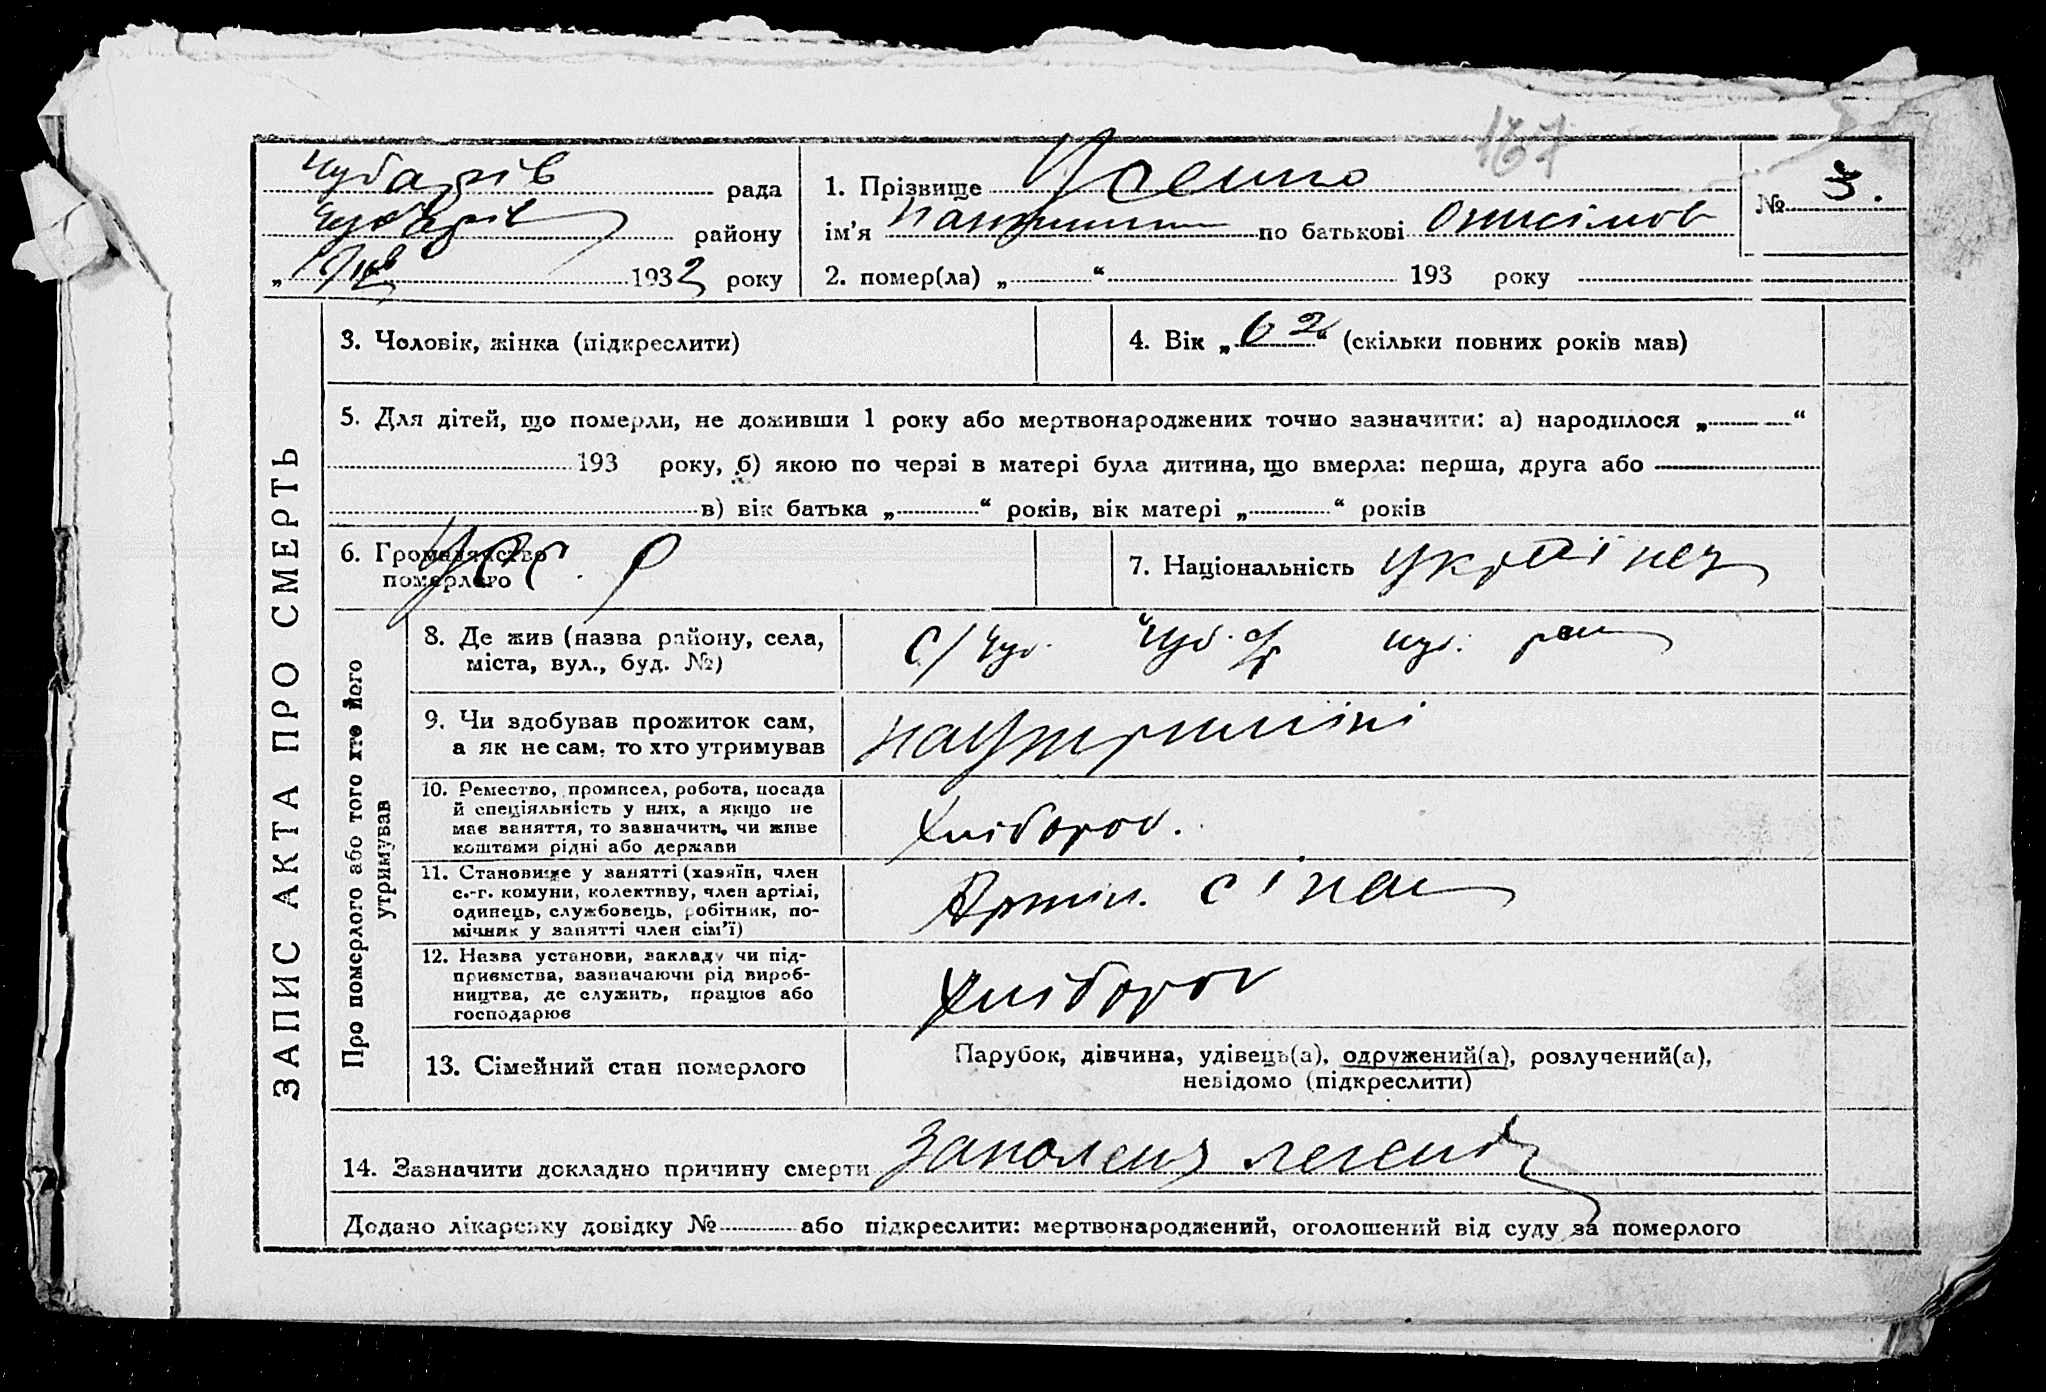 167
Чубарів рада
Чубарів району
„ 1932 року
1. Прізвище Усенко
ім’я по батькові Онисімов
2. помер(ла) „ “ 193 року
№ 3.
ЗАПИС АКТА ПРО СМЕРТЬ
3. Чоловік, жінка (підкреслити)
4. Вік „62“ (скільки повних років мав)
5. Для дітей, що померли, не доживши 1 року або мертвонароджених точно зазначити: а) народилося „ “
193 року, б) якою по черзі в матері була дитина, що вмерла: перша, друга або
в) вік батька „ “ років, вік матері „ “ років
6. Громадянство
померлого
7. Національність українец
Про померлого або того хто його
утримував
8. Де жив (назва району, села,
міста, вул., буд. №)
с/Чуб. Чуб. с/р Чуб. рай
9. Чи здобував прожиток сам,
а як не сам, то хто утримував
на утриманні
10. Ремество, промисел, робота, посада
й спеціяльність у них, а якщо не
має заняття, то зазначити, чи живе
коштами рідні або держави
Хлібороб.
11. Становище у занятті (хазяїн, член
с.-г. комуни, колективу, член артілі,
одинець, службовець, робітник, по-
мічник у занятті член сім’ї)
Артіл.
12. Назва установи, закладу чи під-
приємства, зазначаючи рід вироб-
ництва, де служить, працює або
господарює
Хлібороб
13. Сімейний стан померлого
Парубок, дівчина, удівець(а), одружений(а), розлучений(а),
невідомо (підкреслити)
14. Зазначити докладно причину смерти легень
Додано лікарську довідку № або підкреслити: мертвонароджений, оголошений від суду за померлого